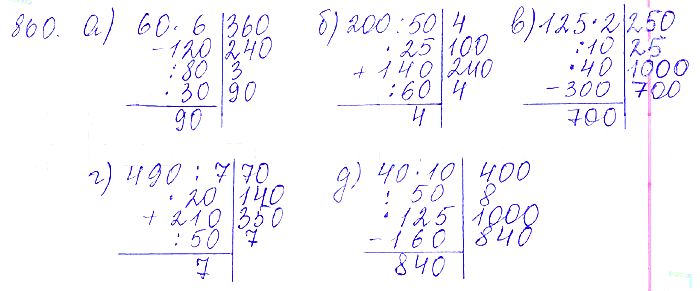 860. а) 60 · 6 | 360 б) 200 : 50 | 4 в) 125 · 2 | 250
- 120 | 240 · 25 | 100 : 10 | 25
: 80 | 3 + 140 | 240 · 40 | 1000
· 30 | 90 : 60 | 4 - 300 | 700
90 4 700
г) 490 : 7 | 70 д) 40 · 10 | 400
· 20 | 140 : 50 | 8
+ 210 | 350 · 125 | 1000
: 50 | 7 - 160 | 840
7 840